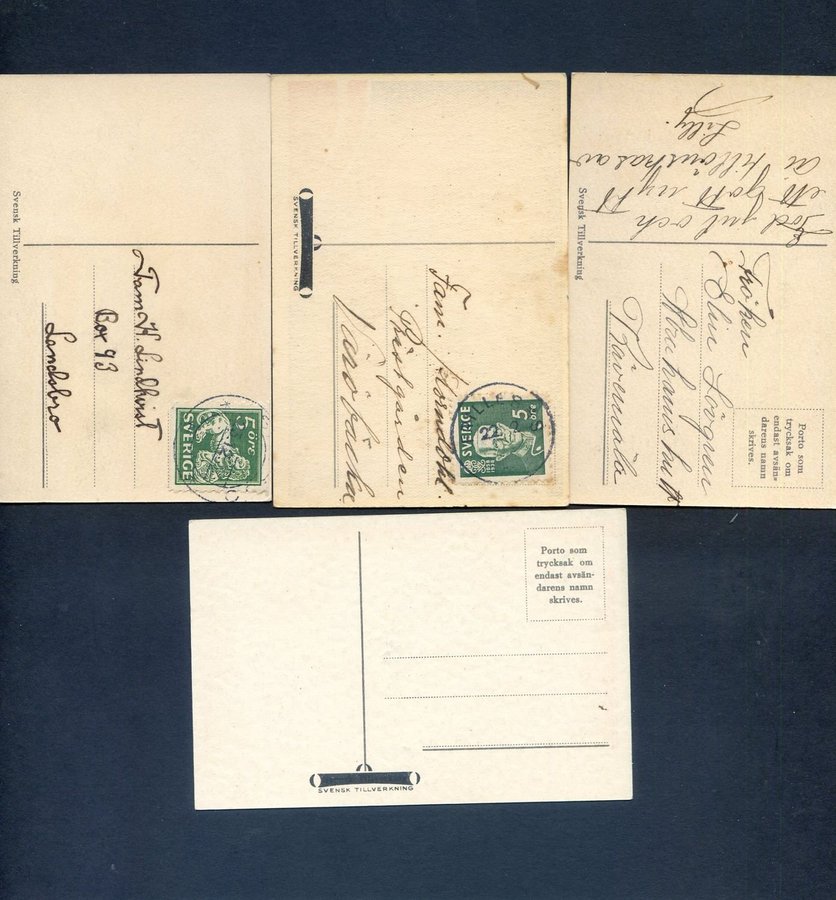 Svensk Tillverkning
Fam. K. Lindkvist
Box 93
Landsbro
5 ÖRE
SVERIGE
SVENSK TILLVERKNING
Fam.
SVERIGE
5 ÖRE
22
God jul och
ett gott nytt
år tillönskas av
Lilly.
Svensk Tillverkning
Fröken
Elin Lövgren
Porto som
trycksak om
endast avsän-
darens namn
skrives.
Porto som
trycksak om
endast avsän-
darens namn
skrives.
SVENSK TILLVERKNING